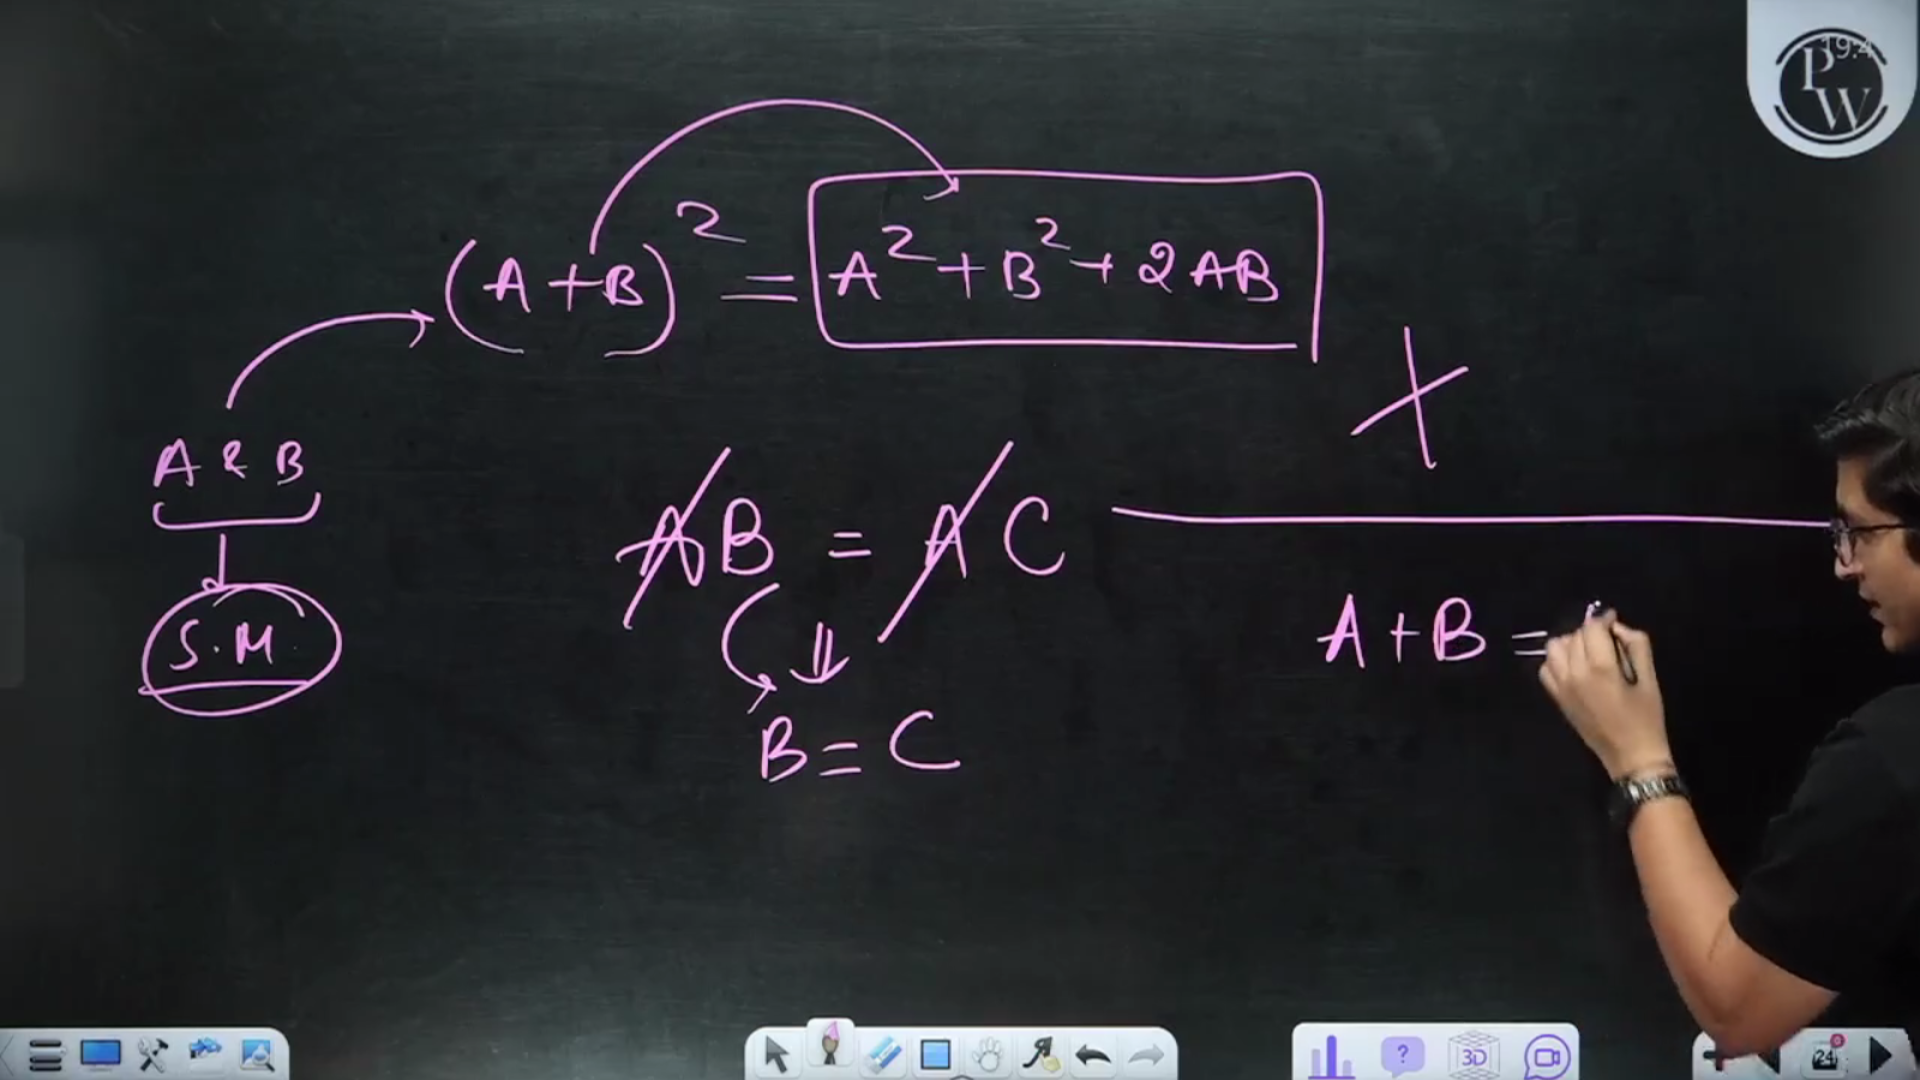 PW
(A+B)² = A²+B²+2AB
A & B
S.M.
AB = AC
B = C
A+B =
?
3D
24